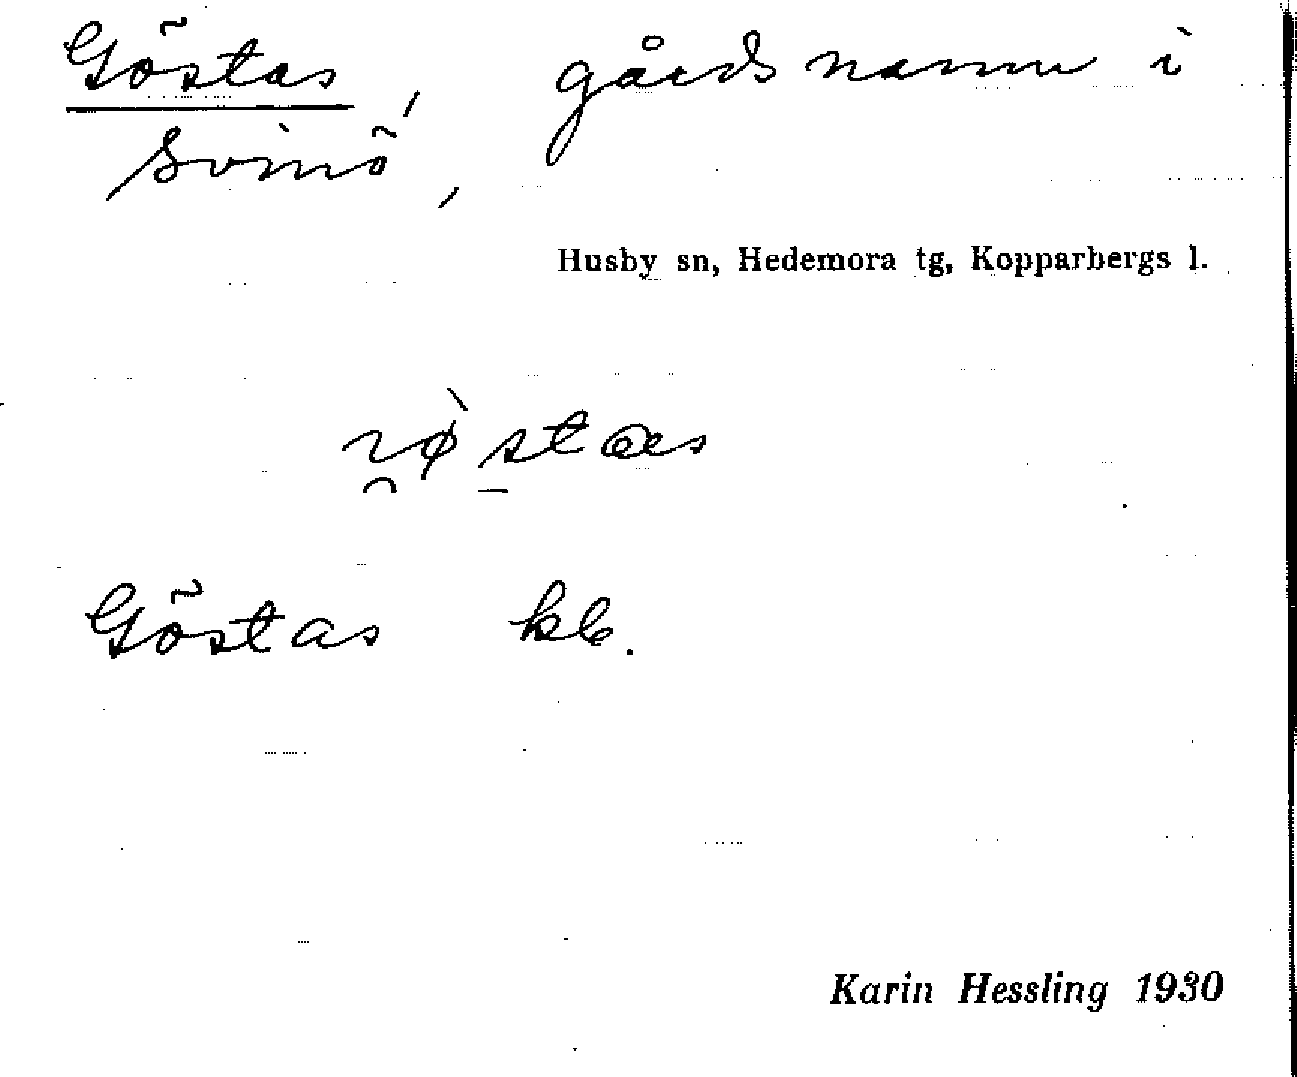 Göstas, gårdsnamn i
Svinö,
Husby sn, Hedemora tg, Kopparbergs l.
Göstas kb.
Karin Hessling 1930